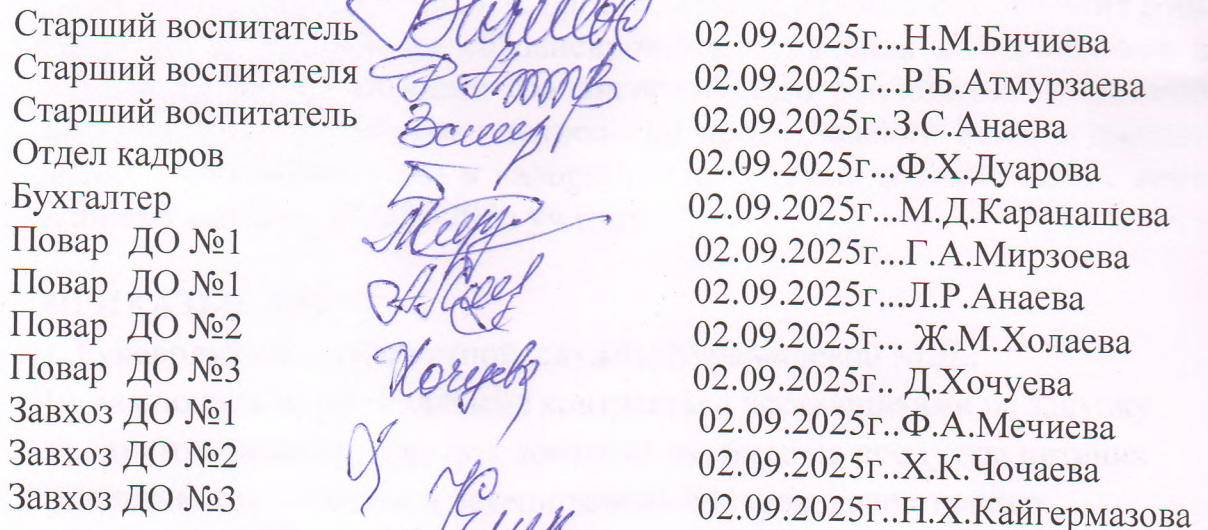 Старший воспитатель 02.09.2025г...Н.М.Бичиева
Старший воспитателя 02.09.2025г...Р.Б.Атмурзаева
Старший воспитатель 02.09.2025г..З.С.Анаева
Отдел кадров 02.09.2025г...Ф.Х.Дуарова
Бухгалтер 02.09.2025г...М.Д.Каранашева
Повар ДО №1 02.09.2025г...Г.А.Мирзоева
Повар ДО №1 02.09.2025г...Л.Р.Анаева
Повар ДО №2 02.09.2025г... Ж.М.Холаева
Повар ДО №3 02.09.2025г.. Д.Хочуева
Завхоз ДО №1 02.09.2025г..Ф.А.Мечиева
Завхоз ДО №2 02.09.2025г...Х.К.Чочаева
Завхоз ДО №3 02.09.2025г..Н.Х.Кайгермазова